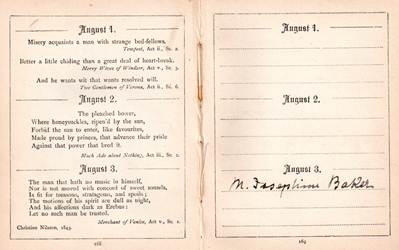 August 1.
Misery acquaints a man with strange bed-fellows.
Tempest, Act ii., Sc. 2.
Better a little chiding than a great deal of heart-break.
Merry Wives of Windsor, Act v., Sc. 3.
And he wants wit that wants resolved will.
Two Gentlemen of Verona, Act ii., Sc. 6.
August 2.
The pleached bower,
Where honeysuckles, ripen'd by the sun,
Forbid the sun to enter, like favourites,
Made proud by princes, that advance their pride
Against that power that bred it.
Much Ado about Nothing, Act iii., Sc. 1.
August 3.
The man that hath no music in himself,
Nor is not moved with concord of sweet sounds,
Is fit for treasons, stratagems, and spoils;
The motions of his spirit are dull as night,
And his affections dark as Erebus:
Let no such man be trusted.
Merchant of Venice, Act v., Sc. 1.
Christine Nilsson, 1843.
168
August 1.
August 2.
August 3.
M. Josephine Baker
169